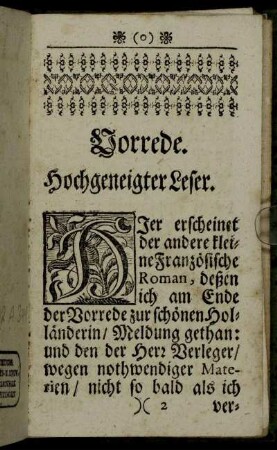 (0)
Vorrede.
Hochgeneigter Leser.
HIer erscheinet
der andere klei-
ne Französische
Roman, deßen
ich am Ende
der Vorrede zur schönen Hol-
länderin/ Meldung gethan:
und den der Herr Verleger/
wegen nothwendiger Mate-
rien/ nicht so bald als ich
)( 2 ver-